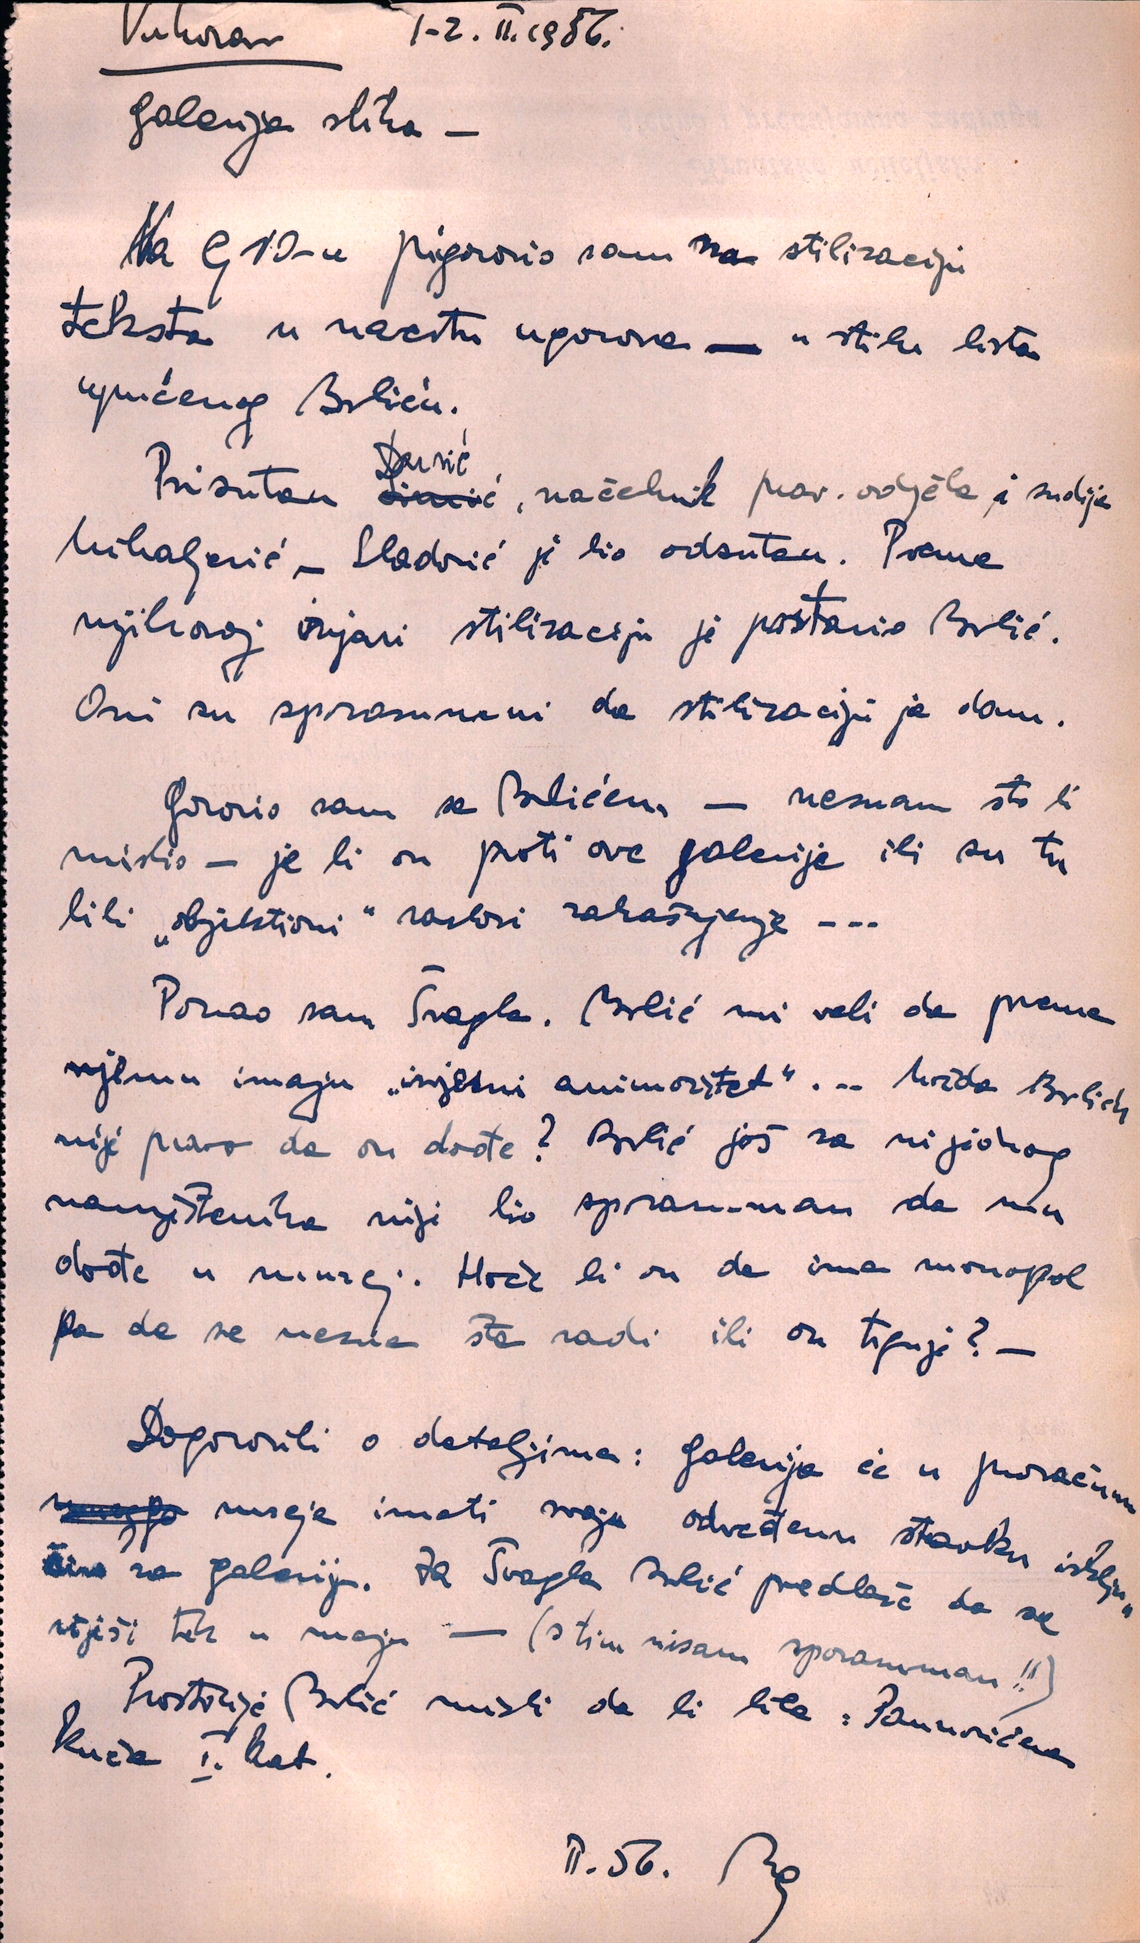 Vukovar 1-2. II. 1956.
Galerija slika —
Na GNO-u pregovorio sam na stilizaciji
teksta u nacrtu ugovora — u stilu lista
upućenog Brliću.
Prisutan Dimić Darsić, načelnik prav. odjela i sudija
Mihaljević — Sladović je bio odsutan. Prema
njihovoj izjavi stilizaciju je postavio Brlić.
Oni su sporazumni da stilizaciju ja dam.
Govorio sam sa Brlićem — neznam što bi
mislio — je li on proti ove galerije ili su tu
bili „objektivni" razlozi zakašnjenja ---
Poznao sam Švagla. Brlić mi veli da prema
njemu imaju „izvjesni animozitet". -- Možda Brlich
nije pravo da on dođe? Brlić još za nijednog
namještenika nije bio sporazuman da mu
dođe u muzej. Hoće li on da ima monopol
pa da se nezna šta radi ili on trguje? —
Dogovorili o detaljima: galerija će u proračunu
muzeja imati svoju odvojenu stavku isklju-
čivo za galeriju. Za Švagla Brlić predlaže da se
riješi tek u maju — (s tim nisam sporazuman!!)
Prostorije Brlić misli da bi bile: Paunovićeva
kuća I. kat.
II. 56.